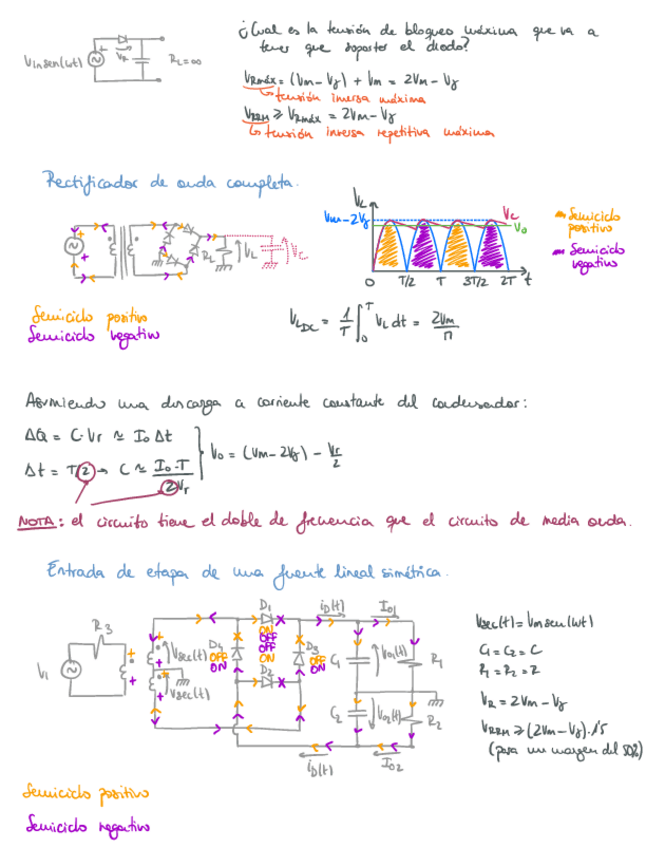 ¿Cual es la tensión de bloqueo máxima que va a
tener que soportar el diodo?
Vm sen(wt)
Vγ
RL=∞
VRmáx = (Vm-Vγ) + Vm = 2Vm - Vγ
tensión inversa máxima
VRRM ≥ VRmáx = 2Vm - Vγ
tensión inversa repetitiva máxima
Rectificador de onda completa.
RL
VL
Vc
VL
Vm-2Vγ
Vc
Vo
0 T/2 T 3T/2 2T t
Semiciclo
positivo
Semiciclo
negativo
Semiciclo positivo
Semiciclo negativo
VLDC = 1/T ∫₀ᵀ VL dt = 2Vm/π
Asumiendo una descarga a corriente constante del condensador:
ΔQ = C·Vr ≃ Io Δt
Δt = T/2 → C ≃ Io·T/2Vr
Vo = (Vm-2Vγ) - Vr/2
NOTA: el circuito tiene el doble de frecuencia que el circuito de media onda.
Entrada de etapa de una fuente lineal simétrica.
R3
V1
Vsec(t)
Vsec(t)
D1
ON
OFF
D4
OFF
ON
OFF
ON
D2
D3
OFF
ON
iD(t)
Io1
C1
Vo1(t)
R1
C2
Vo2(t)
R2
iD(t)
Io2
Vsec(t) = Vm sen(wt)
C1 = C2 = C
R1 = R2 = R
VR = 2Vm - Vγ
VRRM ≥ (2Vm-Vγ)·1'5
(para un margen del 50%)
Semiciclo positivo
Semiciclo negativo